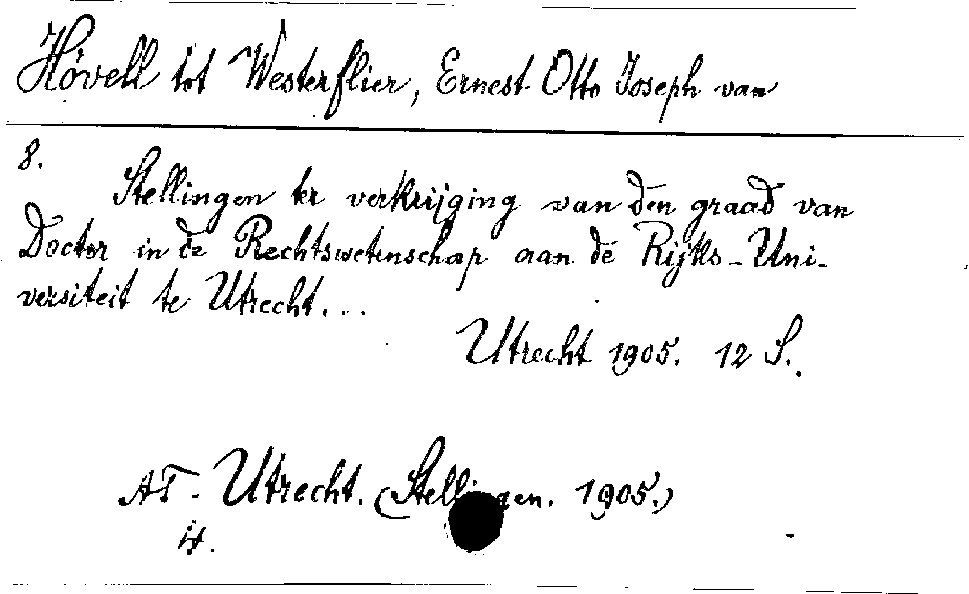 Hövell tot Westerflier, Ernest Otto Joseph van
8.
Stellingen ter verkrijging van den graad van
Doctor in de Rechtswetenschap aan de Rijks-Uni-
versiteit te Utrecht...
Utrecht 1905. 12 S.
AT- Utrecht. (Stellingen. 1905.)